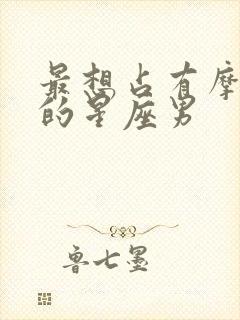 最想占有摩
的星座男
鲁七墨